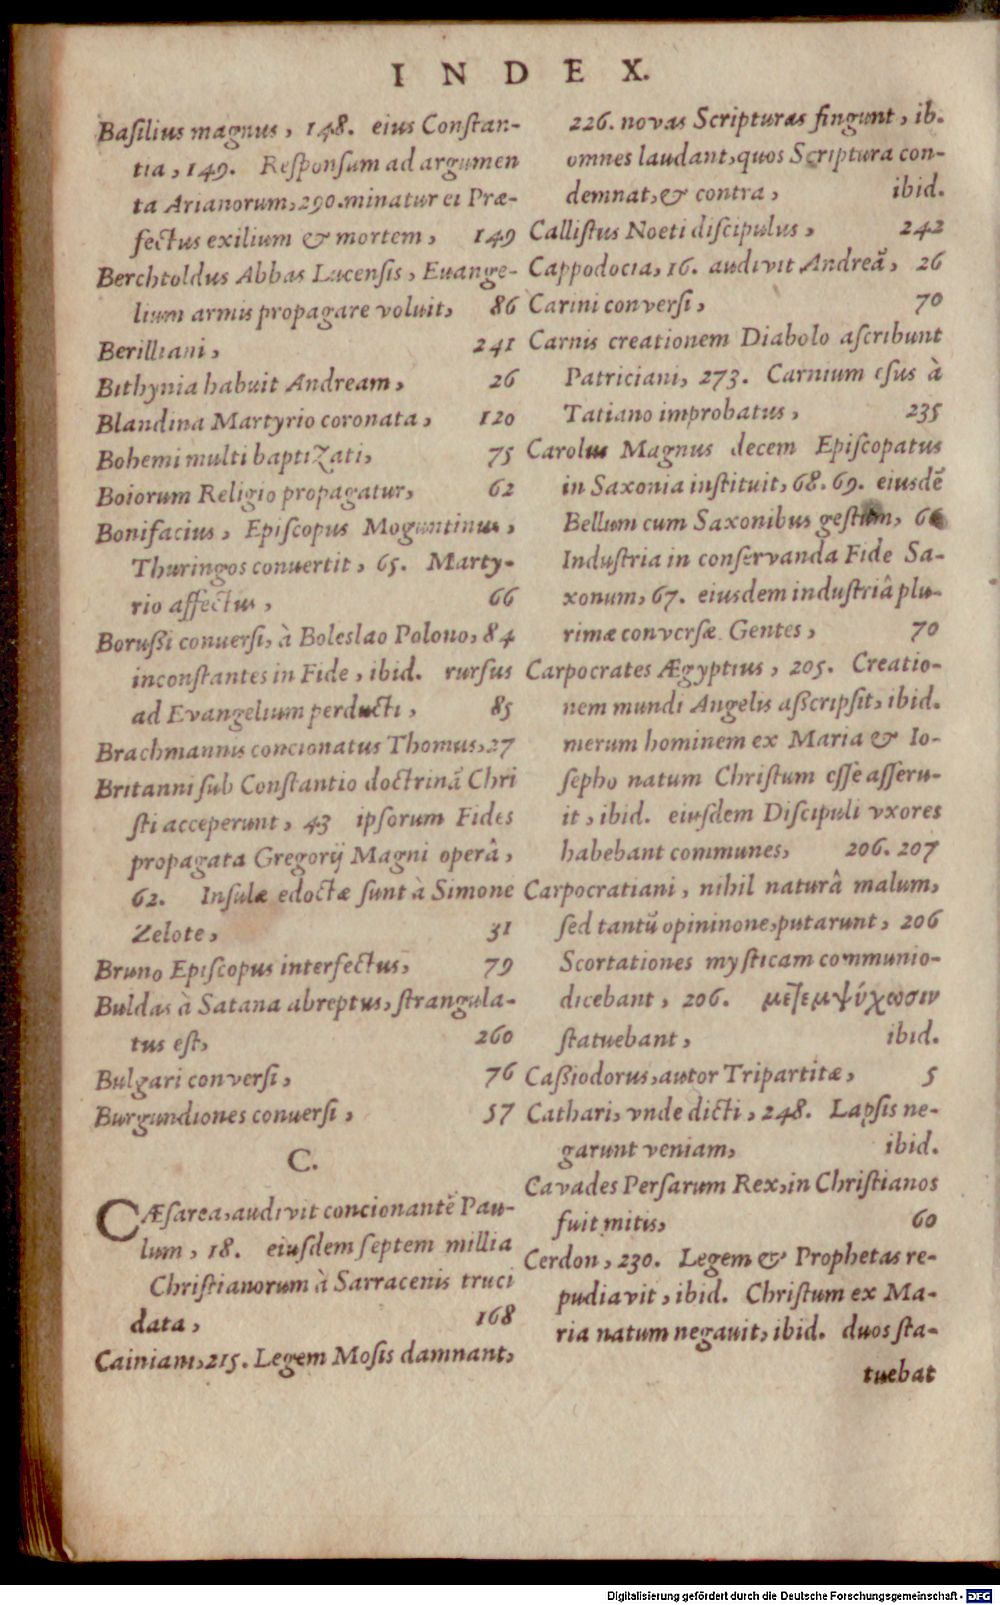 INDEX.
Basilius magnus, 148. eius Constan-
tia, 149. Responsum ad argumen
ta Arianorum, 290. minatur ei Præ-
fectus exilium & mortem, 149
Berchtoldus Abbas Lucensis, Euange-
lium armis propagare voluit, 86
Berilliani, 241
Bithynia habuit Andream, 26
Blandina Martyrio coronata, 120
Bohemi multi baptizati, 75
Boiorum Religio propagatur, 62
Bonifacius, Episcopus Moguntinus,
Thuringos conuertit, 65. Marty-
rio affectus, 66
Borussi conuersi, à Boleslao Polono, 84
inconstantes in Fide, ibid. rursus
ad Evangelium perducti, 85
Brachmannis concionatus Thomas, 27
Britanni sub Constantio doctrinā Chri
sti acceperunt, 43 ipsorum Fides
propagata Gregorij Magni operâ,
62. Insulæ edoctæ sunt à Simone
Zelote, 31
Bruno Episcopus interfectus, 79
Buldas à Satana abreptus, strangula-
tus est, 260
Bulgari conversi, 76
Burgundiones conuersi, 57
C.
CÆsarea, audivit concionantē Pau-
lum, 18. eiusdem septem millia
Christianorum à Sarracenis truci
data, 168
Cainiani, 215. Legem Mosis damnant,
226. novas Scripturas fingunt, ib.
omnes laudant, quos Scriptura con-
demnat, & contra, ibid.
Callistus Noeti discipulus, 242
Cappodocia, 16. audivit Andreā, 26
Carini conversi, 70
Carnis creationem Diabolo ascribunt
Patriciani, 273. Carnium esus à
Tatiano improbatus, 235
Carolus Magnus decem Episcopatus
in Saxonia instituit, 68. 69. eiusdē
Bellum cum Saxonibus gestum, 66
Industria in conservanda Fide Sa-
xonum, 67. eiusdem industriâ plu-
rimæ conversæ Gentes, 70
Carpocrates Ægyptius, 205. Creatio-
nem mundi Angelis asscripsit, ibid.
merum hominem ex Maria & Io-
sepho natum Christum esse asseru-
it, ibid. eiusdem Discipuli vxores
habebant communes, 206. 207
Carpocratiani, nihil naturâ malum,
sed tantū opininone, putarunt, 206
Scortationes mysticam communio-
dicebant, 206. μετεμψύχωσιν
statuebant, ibid.
Cassiodorus, autor Tripartitæ, 5
Cathari, vnde dicti, 248. Lapsis ne-
garunt veniam, ibid.
Cavades Persarum Rex, in Christianos
fuit mitis, 60
Cerdon, 230. Legem & Prophetas re-
pudiavit, ibid. Christum ex Ma-
ria natum negauit, ibid. duos sta-
tuebat
Digitalisierung gefördert durch die Deutsche Forschungsgemeinschaft - DFG